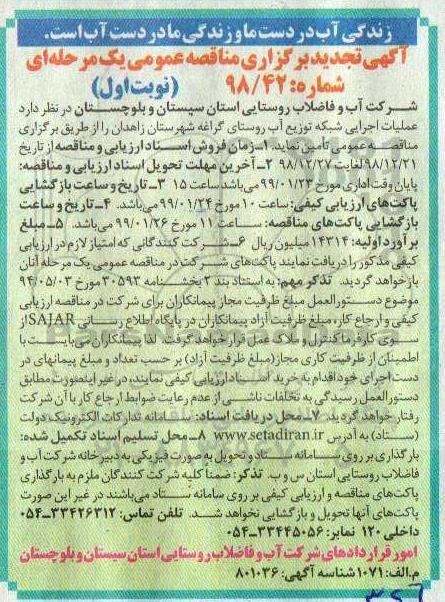 زندگی آب در دست ما و زندگی ما در دست آب است.
آگهی تجدید برگزاری مناقصه عمومی یک مرحله‌ای
شماره: ۹۸/۴۲ (نوبت اول)
شرکت آب و فاضلاب روستایی استان سیستان و بلوچستان در نظر دارد
عملیات اجرایی شبکه توزیع آب روستای گراغه شهرستان زاهدان را از طریق برگزاری
مناقصه عمومی تأمین نماید. ۱ــ زمان فروش اسناد ارزیابی و مناقصه: از تاریخ
۹۸/۱۲/۲۱ لغایت ۹۸/۱۲/۲۷ ۲ــ آخرین مهلت تحویل اسناد ارزیابی و مناقصه:
پایان وقت اداری مورخ ۹۹/۰۱/۲۳ می‌باشد ساعت ۱۵ ۳ــ تاریخ و ساعت بازگشایی
پاکت‌های ارزیابی کیفی: ساعت ۱۰ مورخ ۹۹/۰۱/۲۴ می‌باشد. ۴ــ تاریخ و ساعت
بازگشایی پاکت‌های مناقصه: ساعت ۱۱ مورخ ۹۹/۰۱/۲۶ می‌باشد. ۵ــ مبلغ
برآورد اولیه: ۱۴۳۱۴ میلیون ریال ۶ــ شرکت کنندگانی که امتیاز لازم در ارزیابی
کیفی مذکور را دریافت نمایند پاکت‌های شرکت در مناقصه عمومی یک مرحله آنان
باز خواهد گردید. تذکر مهم: به استناد بند ۲ بخشنامه ۳۰۵۹۳ مورخ ۹۴/۰۵/۰۳
موضوع دستورالعمل مبلغ ظرفیت مجاز پیمانکاران برای شرکت در مناقصه ارزیابی
کیفی و ارجاع کار، مبلغ ظرفیت آزاد پیمانکاران در پایگاه اطلاع رسانی SAJAR از
سوی کارفرما کنترل و ملاک عمل قرار خواهد گرفت. لذا پیمانکاران می‌بایست با
اطمینان از ظرفیت کاری مجاز (مبلغ ظرفیت آزاد) بر حسب تعداد و مبلغ پیمانهای در
دست اجرای خود اقدام به خرید اسناد ارزیابی کیفی نمایند، در غیر اینصورت مطابق
دستورالعمل رسیدگی به تخلفات ناشی از عدم رعایت ضوابط ارجاع کار با آن شرکت
رفتار خواهد گردید. ۷ــ محل دریافت اسناد: سامانه تدارکات الکترونیک دولت
(ستاد) به آدرس www.setadiran.ir ۸ــ محل تسلیم اسناد تکمیل شده:
بارگذاری بر روی سامانه ستاد و تحویل به صورت فیزیکی به دبیرخانه شرکت آب و
فاضلاب روستایی استان س و ب. تذکر: ضمناً کلیه شرکت کنندگان ملزم به بارگذاری
پاکت‌های مناقصه و ارزیابی کیفی بر روی سامانه ستاد می‌باشند در غیر این صورت
پاکت‌های آنها تحویل و بازگشایی نخواهد شد. تلفن تماس: ۳۳۴۲۶۳۱۲-۰۵۴
داخلی ۱۲۰ نمابر: ۳۳۴۴۵۰۵۶-۰۵۴
امور قراردادهای شرکت آب و فاضلاب روستایی استان سیستان و بلوچستان
م.الف: ۱۰۷۱ شناسه آگهی: ۸۰۱۰۳۶